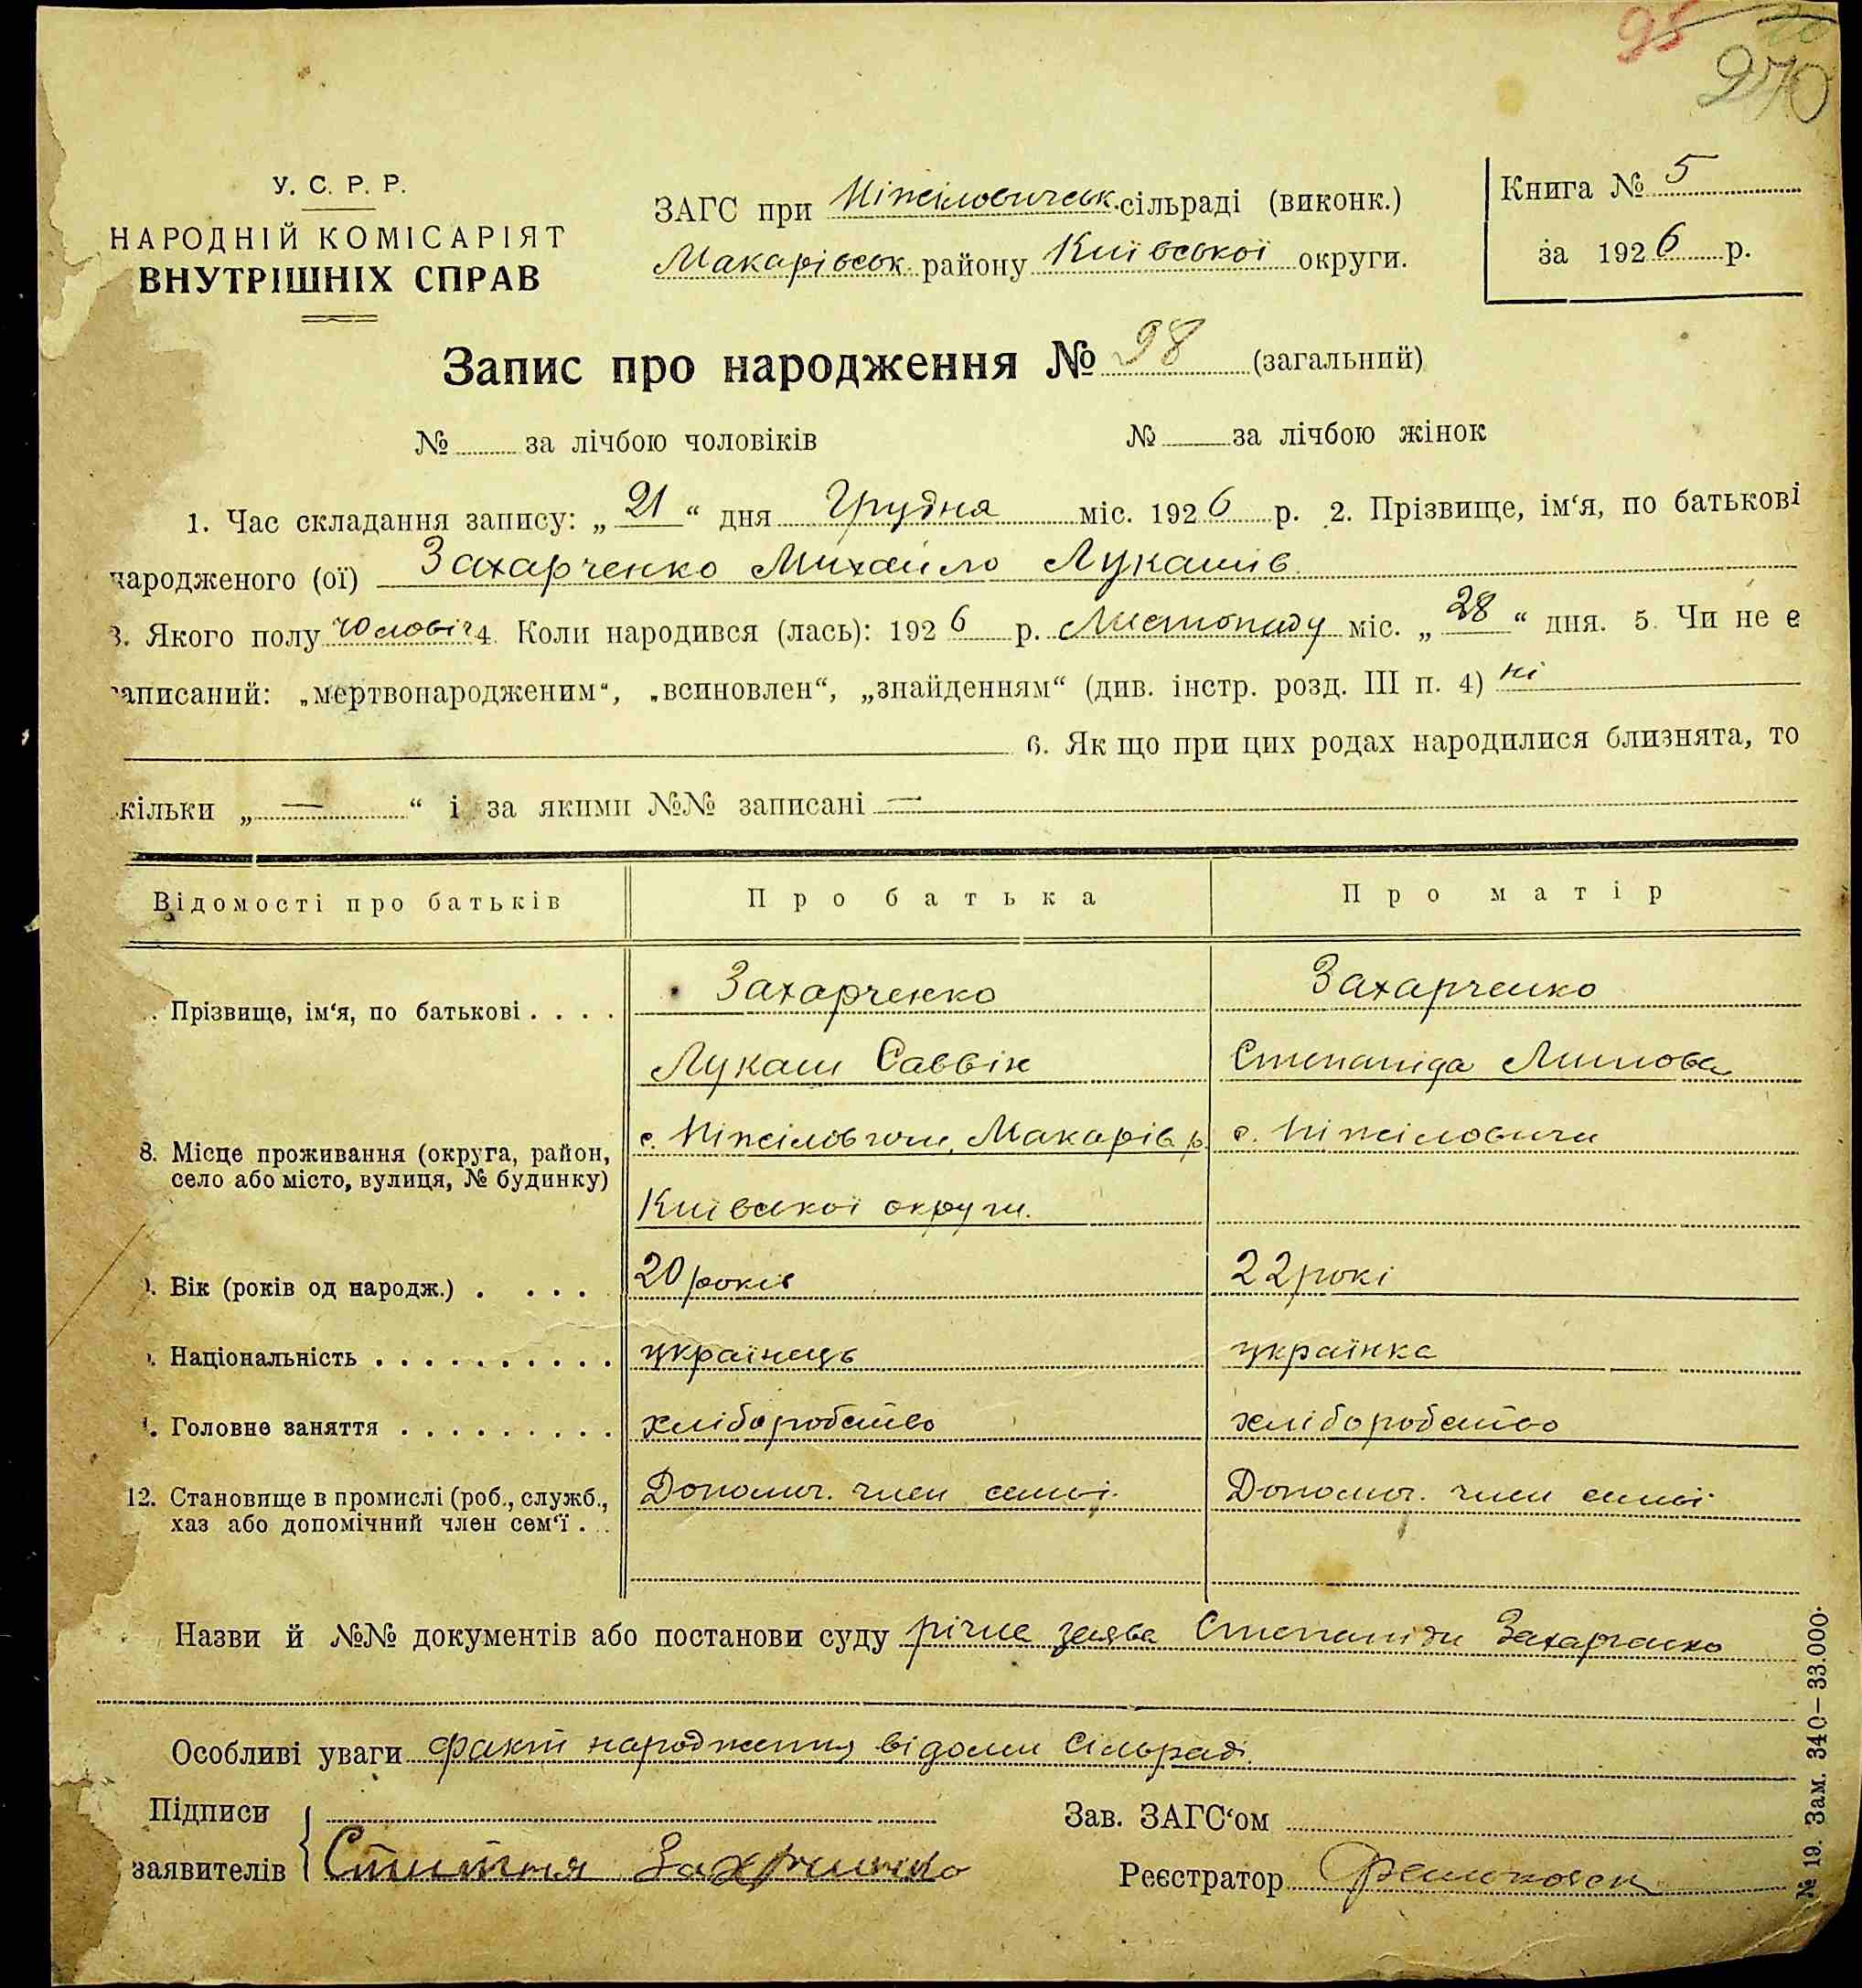 95
270
У. С. Р. Р.
НАРОДНІЙ КОМІСАРІЯТ
ВНУТРІШНІХ СПРАВ
ЗАГС при Ніжиловичськ. сільраді (виконк.)
Макарівськ. району Київської округи.
Книга № 5
за 1926 р.
Запис про народження № 98 (загальний)
№ за лічбою чоловіків № за лічбою жінок
1. Час складання запису: „21“ дня Грудня міс. 1926 р. 2. Прізвище, ім‘я, по батькові
народженого (ої) Захарченко Михайло Лукашів
3. Якого полу чоловіч 4. Коли народився (лась): 1926 р. Листопаду міс. „28“ дня. 5. Чи не є
записаний: „мертвонародженим“, „всиновлен“, „знайденням“ (див. інстр. розд. III п. 4) ні
6. Як що при цих родах народилися близнята, то
кільки „—“ і за якими №№ записані —
Відомості про батьків Про батька Про матір
Прізвище, ім‘я, по батькові . . . . Захарченко Захарченко
Лукаш Саввін Степанида
8. Місце проживання (округа, район, село або місто, вулиця, № будинку) с. Ніжиловичи, Макарів р. с. Ніжиловичи
Київської округи.
Вік (років од народж.) . . . . 20 років 22 рокі
Національність . . . . . . . . . . українець українка
Головне заняття . . . . . . . . . хліборобство хліборобство
12. Становище в промислі (роб., служб., хаз або допомічний член сем‘ї . . . Допоміч. член семьї. Допоміч. член семьї
Назви й №№ документів або постанови суду заява Степаниди Захарченко
Особливі уваги факт народження відомий Сільраді.
Підписи
заявителів
Зав. ЗАГС‘ом
Реєстратор
№ 19. Зам. 340—33.000.